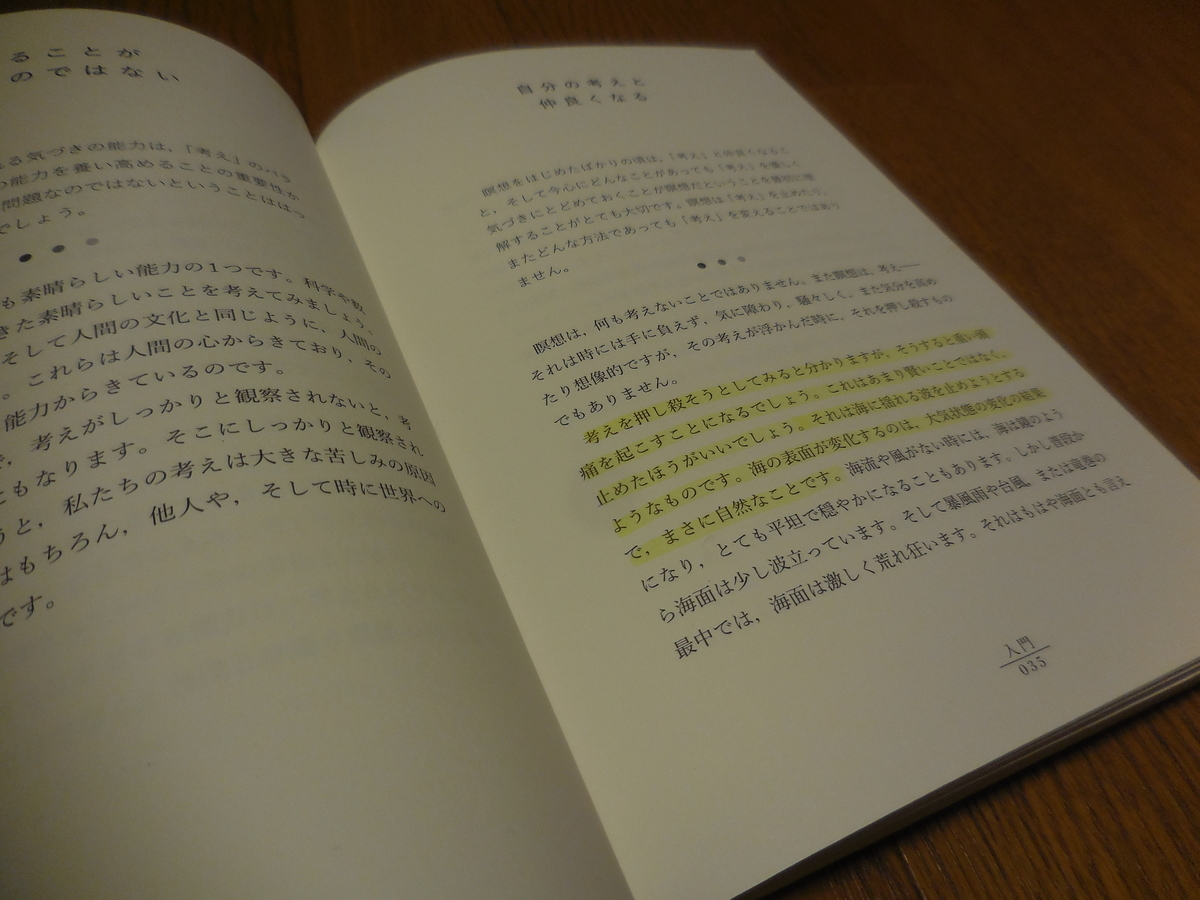 ることが
のではない
る気づきの能力は，「考え」のバラ
の能力を養い高めることの重要性が
問題なのではないということははっ
でしょう。
も素晴らしい能力の1つです。科学や数
きた素晴らしいことを考えてみましょう。
そして人間の文化と同じように，人間の
。これらは人間の心からきており，その
能力からきているのです。
，考えがしっかりと観察されないと，考
にもなります。そこにしっかりと観察され
うと，私たちの考えは大きな苦しみの原因
はもちろん，他人や，そして時に世界への
です。
自分の考えと
仲良くなる
瞑想をはじめたばかりの頃は，「考え」と仲良くなるこ
と，そして今心にどんなことがあっても「考え」を優しく
気づきにとどめておくことが瞑想だということを適切に理
解することがとても大切です。瞑想は「考え」を止めたり，
またどんな方法であっても「考え」を変えることではあり
ません。
瞑想は，何も考えないことではありません。また瞑想は，考え――
それは時には手に負えず，気に障わり，騒々しく，また気分を高め
たり想像的ですが，その考えが浮かんだ時に，それを押し殺すもの
でもありません。
考えを押し殺そうとしてみると分かりますが，そうすると重い頭
痛を起こすことになるでしょう。これはあまり賢いことではなく，
止めたほうがいいでしょう。それは海に揺れる波を止めようとする
ようなものです。海の表面が変化するのは，大気状態の変化の結果
で，まさに自然なことです。海流や風がない時には，海は鏡のよう
になり，とても平坦で穏やかになることもあります。しかし普段か
ら海面は少し波立っています。そして暴風雨や台風，または竜巻の
最中では，海面は激しく荒れ狂います。それはもはや海面とも言え
入門
035